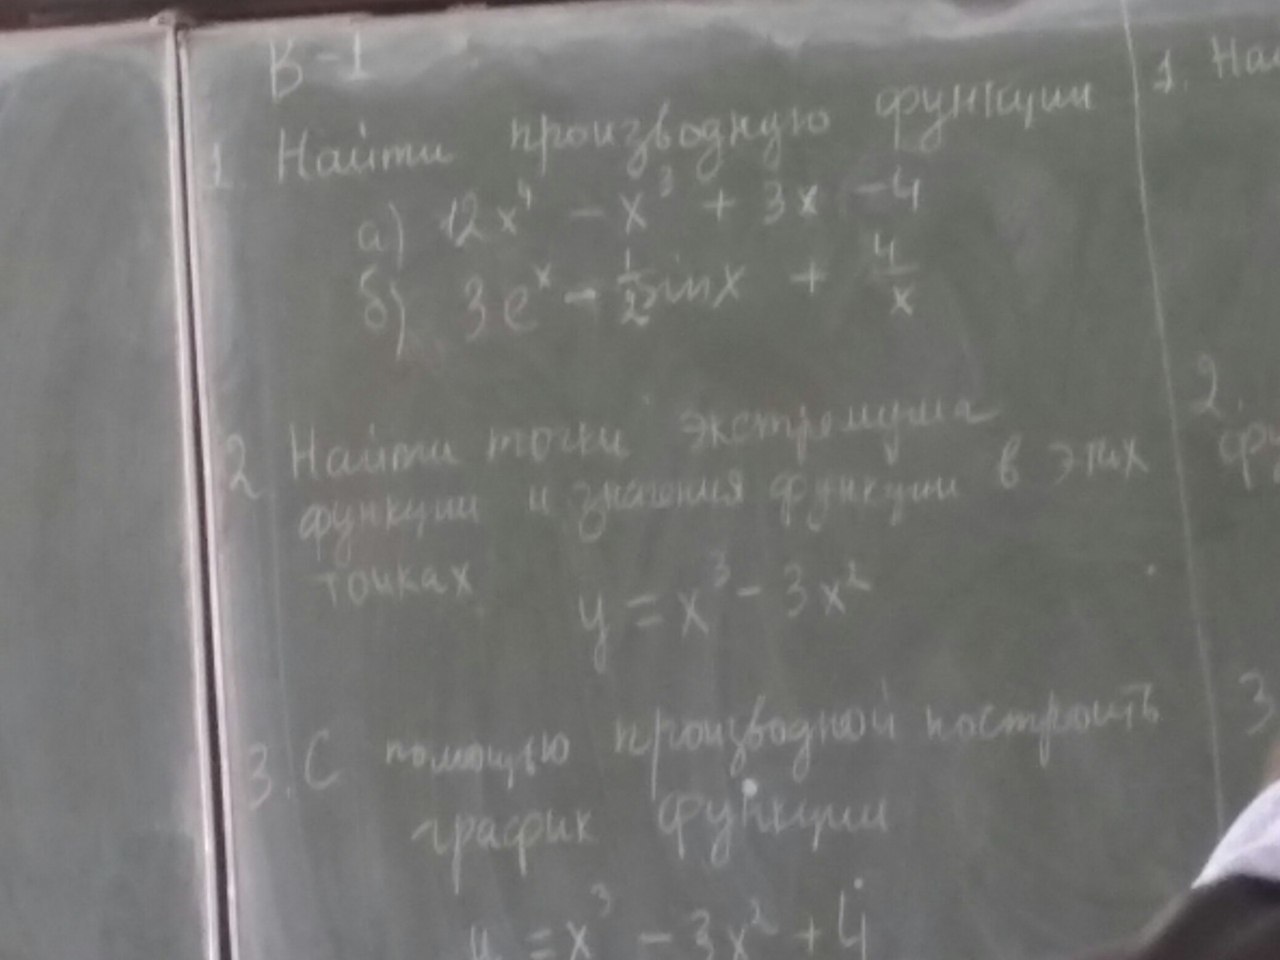 В-1
1 Найти производную функции
а) 12x⁴ - x³ + 3x - 4
б) 3eˣ - 1/2 sinx + 4/x
2 Найти точки экстремума
функции и значения функции в этих
точках
y = x³ - 3x²
3. С помощью производной построить
график функции
y = x³ - 3x² + 4
1. На
2.
3